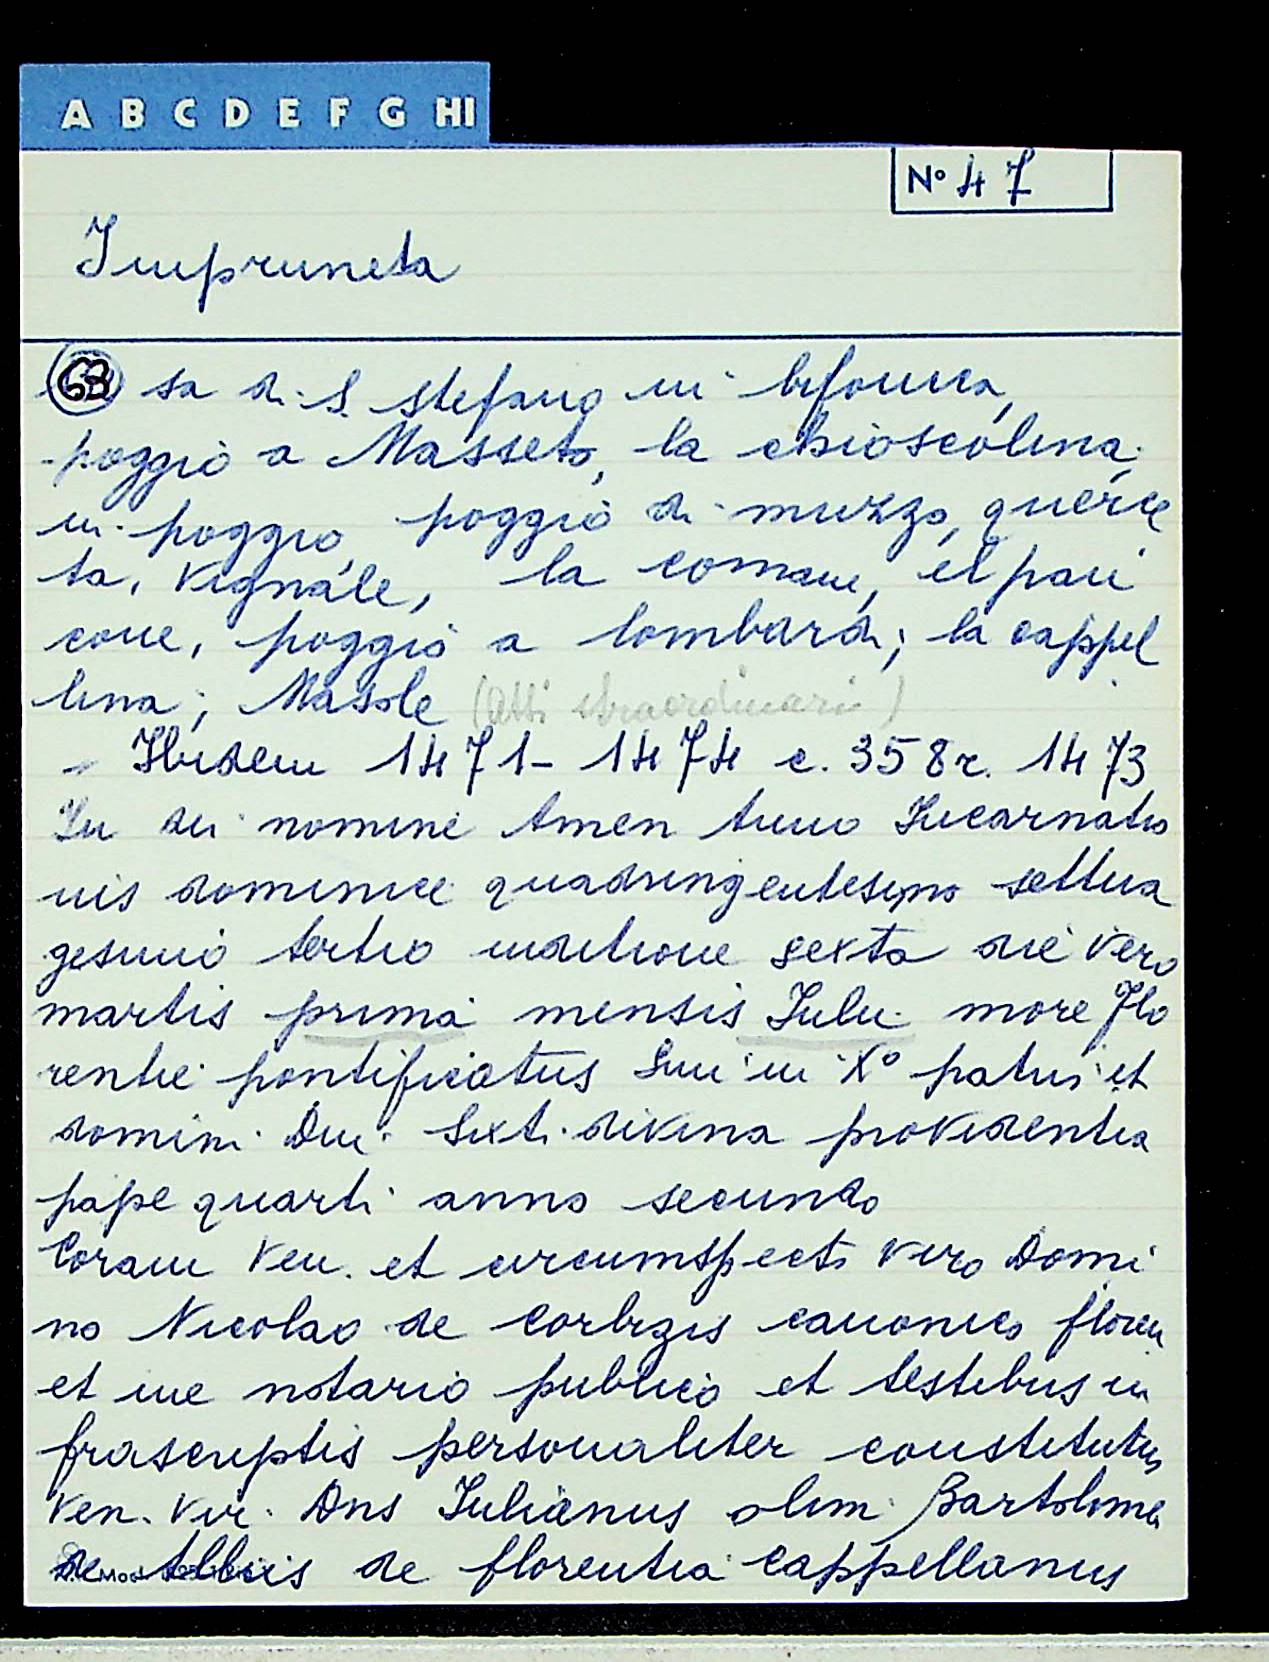 A B C D E F G HI
Nº 47
Impruneta
63 sa di S. Stefano in bifonica,
poggio a Masseto, la chioscolina,
in poggio, poggio di muzzo, querce
ta, Vignale, la comane, el pani
cone, poggio a lombardi; la cappel
lina; Masole (Atti straordinari)
- Ibidem 1471-1474 c. 358r. 1473
In dei nomine Amen Anno Incarnatio
nis dominice quadringentesimo settua
gesimo tertio inditione sexta die vero
martis prima mensis Iulii more Flo
rentie pontificatus Smi in Xº patris et
domini Dni. Sixti divina providentia
pape quarti anno secundo
Coram Ven. et circumspecto viro Domi
no Nicolao de Corbizis canonico floren
et me notario publico et testibus in
frascriptis personaliter constitutus
Ven. Vir. Dns Iulianus olim Bartolomei
de Albizis de florentia Cappellanus